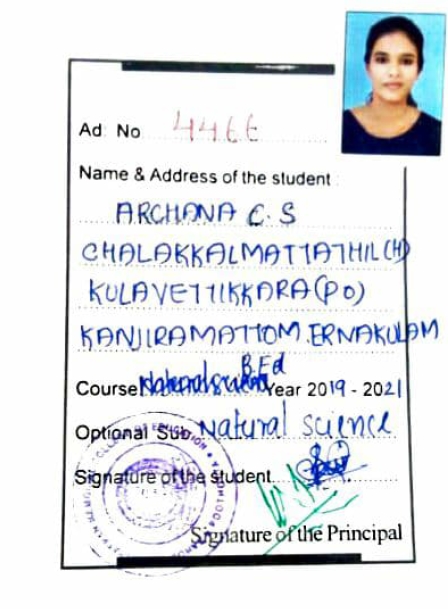 Ad: No 4466
Name & Address of the student :
ARCHANA C.S
CHALAKKALMATTATHIL (H)
KULAVETTIKKARA (PO)
KANJIRAMATTOM. ERNAKULAM
B.Ed
Course Natural science Year 2019 - 2021
Optional Sub Natural Science
Signature of the student
Signature of the Principal